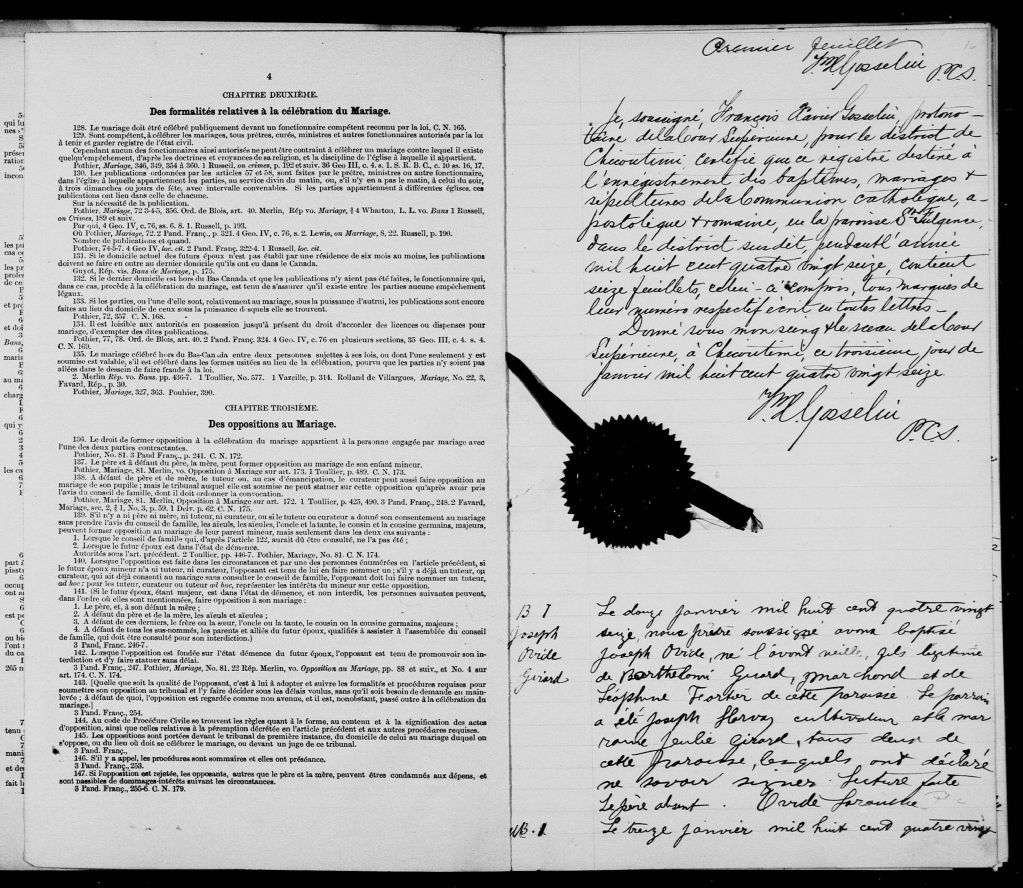 4
CHAPITRE DEUXIÈME.
Des formalités relatives à la célébration du Mariage.
128. Le mariage doit être célébré publiquement devant un fonctionnaire compétent reconnu par la loi, C. N. 165.
129. Sont compétent, à célébrer les mariages, tous prêtres, curés, ministres et autres fonctionnaires autorisés par la loi
à tenir et garder registre de l'état civil.
Cependant aucun des fonctionnaires ainsi autorisés ne peut être contraint à célébrer un mariage contre lequel il existe
quelqu'empêchement, d'après les doctrines et croyances de sa religion, et la discipline de l'église à laquelle il appartient.
Pothier, Mariage, 346, 349, 354 à 360. 1 Russell, on crimes, p. 192 et suiv. 36 Geo III, c. 4. s. 1. S. R. B. C., c. 10 ss. 16, 17.
130. Les publications ordonnées par les articles 57 et 58, sont faites par le prêtre, ministres ou autre fonctionnaire,
dans l'église à laquelle appartiennent les parties, au service divin du matin, ou, s'il n'y en a pas le matin, à celui du soir,
à trois dimanches ou jours de fête, avec intervalle convenables. Si les parties appartiennent à différentes églises, ces
publications ont lieu dans celle de chacune.
Sur la nécessité de la publication.
Pothier, Mariage, 72 3-4-5, 356. Ord. de Blois, art. 40. Merlin, Rép vo. Mariage, § 4 Wharton, L. L. vo. Bans 1 Russell,
on Crimes, 189 et suiv.
Par qui, 4 Geo. IV, c. 76, ss. 6. 8. 1. Russell, p. 193.
Où Pothier, Mariage, 72. 2 Pand. Franç., p. 321. 4 Geo. IV, c. 76, s. 2. Lewis, on Marriage, 8, 22. Russell, p. 190.
Nombre de publications et quand.
Pothier, 74-5-7. 4 Geo IV, loc. cit. 2 Pand. Franç. 322-4. 1 Russell, loc. cit.
131. Si le domicile actuel des futurs époux n'est pas établi par une résidence de six mois au moins, les publications
doivent se faire en outre au dernier domicile qu'ils ont eu dans le Canada.
Guyot, Rép. vis. Bans de Mariage, p. 175.
132. Si le dernier domicile est hors du Bas Canada et que les publications n'y aient pas été faites, le fonctionnaire qui,
dans ce cas, procède à la célébration du mariage, est tenu de s'assurer qu'il existe entre les parties aucune empêchement
légaux.
133. Si les parties, ou l'une d'elle sont, relativement au mariage, sous la puissance d'autrui, les publications sont encore
faites au lieu du domicile de ceux sous la puissance desquels elle se trouvent.
Pothier, 72, 357 C. N. 168.
134. Il est loisible aux autorités en possession jusqu'à présent du droit d'accorder des licences ou dispenses pour
mariage, d'exempter des dites publications.
Pothier, 77, 78. Ord. de Blois, art. 40. 2 Pand. Franç. 324. 4 Geo IV, c. 76 en plusieurs sections, 35 Geo. III, c. 4. s. 4.
C. N. 169.
135. Le mariage célébré hors du Bas-Canada entre deux personnes sujettes à ses lois, ou dont l'une seulement y est
soumise est valable, s'il est célébré dans les formes usitées au lieu de la célébration, pourvu que les parties n'y soient pas
allées dans le dessein de faire fraude à la loi.
2. Merlin Rép. vo. Bans. pp. 436-7. 1 Toullier, No. 577. 1 Vazeille, p. 314. Rolland de Villargues, Mariage, No. 22, 3,
Favard, Rép., p. 30.
Pothier, Mariage, 327, 363. Pouhier, 390.
CHAPITRE TROISIÈME.
Des oppositions au Mariage.
136. Le droit de former opposition à la célébration du mariage appartient à la personne engagée par mariage avec
l'une des deux parties contractantes.
Pothier, No. 81. 3 Pand Franç., p. 241. C. N. 172.
137. Le père et à défaut du père, la mère, peut former opposition au mariage de son enfant mineur.
Pothier, Mariage, 81. Merlin, vo. Opposition à Mariage sur art. 173. 1 Toullier, p. 489. C. N. 173.
138. A défaut de père et de mère, le tuteur ou, au cas d'émancipation, le curateur peut aussi faire opposition au
mariage de son pupille ; mais le tribunal auquel elle est soumise ne peut statuer sur cette opposition qu'après avoir pris
l'avis du conseil de famille, dont il doit ordonner la convocation.
Pothier, Mariage, 81. Merlin, Opposition à Mariage sur art. 172. 1 Toullier, p. 425, 490. 3 Pand Franç., 248. 2 Favard,
Mariage, sec. 2, § 1, No. 3, p. 59. 1 Delv. p. 62. C. N. 175.
139. S'il n'y a ni père ni mère, ni tuteur, ni curateur, ou si le tuteur ou curateur a donné son consentement au mariage
sans prendre l'avis du conseil de famille, les aïeuls, les aïeules, l'oncle et la tante, le cousin et la cousine germains, majeurs,
peuvent former opposition au mariage de leur parent mineur, mais seulement dans les deux cas suivants :
1. Lorsque le conseil de famille qui, d'après l'article 122, aurait dû être consulté, ne l'a pas été ;
2. Lorsque le futur époux est dans l'état de démence.
Autorités sous l'art. précédent. 2 Toullier, pp. 446-7. Pothier, Mariage, No. 81. C. N. 174.
140. Lorsque l'opposition est faite dans les circonstances et par une des personnes énumérées en l'article précédent, si
le futur époux mineur n'a ni tuteur, ni curateur, l'opposant est tenu de lui en faire nommer un ; s'il y a déjà un tuteur, ou
curateur, qui ait déjà consenti au mariage sans consulter le conseil de famille, l'opposant doit lui faire nommer un tuteur,
ad hoc ; pour les tuteur, curateur ou tuteur ad hoc, représenter les intérêts du mineur sur cette opposition.
141. (Si le futur époux, étant majeur, est dans l'état de démence, et non interdit, les personnes suivantes peuvent,
dans l'ordre où elles sont mentionnées, faire opposition à son mariage :
1. Le père, et, à son défaut la mère ;
2. A défaut du père et de la mère, les aïeuls et aïeules ;
3. A défaut de ces derniers, le frère ou la sœur, l'oncle ou la tante, le cousin ou la cousine germains, majeurs ;
4. A défaut de tous les sus-nommés, les parents et alliés du futur époux, qualifiés à assister à l'assemblée du conseil
de famille, qui doit être consulté pour son interdiction.)
3 Pand, Franc. 246-7.
142. Lorsque l'opposition est fondée sur l'état démence du futur époux, l'opposant est tenu de promouvoir son in-
terdiction et d'y faire statuer sans délai.
3 Pand. Franç., 247. Pothier, Mariage, No. 81. 22 Rép. Merlin, vo. Opposition au Mariage, pp. 88 et suiv., et No. 4 sur
art. 174. C. N. 174.
143. [Quelque que soit la qualité de l'opposant, c'est à lui à adopter et suivre les formalités et procédures requises pour
soumettre son opposition au tribunal et l'y faire décider sous les délais voulus, sans qu'il soit besoin de demande au main-
levée ; à défaut de quoi, l'opposition est regardée comme non avenue, et il est, nonobstant, passé outre à la célébration du
mariage.]
3 Pand. Franç., 254.
144. Au code de Procédure Civile se trouvent les règles quant à la forme, au contenu et à la signification des actes
d'opposition, ainsi que celles relatives à la péremption décrétée en l'article précédent et aux autres procédures requises.
145. Les oppositions sont portées devant le tribunal de première instance, du domicile de celui au mariage duquel on
s'oppose, ou du lieu où doit se célébrer le mariage, ou devant un juge de ce tribunal.
3 Pand. Franç.,
146. S'il y a appel, les procédures sont sommaires et elles ont préséance.
3 Pand. Franç., 253.
147. Si l'opposition est rejetée, les opposants, autres que le père et la mère, peuvent être condamnés aux dépens, et
sont passibles de dommages-intérêts suivant les circonstances.
3 Pand. Franç., 255-6. C. N. 179.
Premier feuillet
F X Gosselin
P.C.S.
16
Je, soussigné, François Xavier Gosselin, protono-
taire de la Cour Supérieure, pour le district de
Chicoutimi certifie que ce registre destiné à
l'enregistrement des baptêmes, mariages &
sépultures de la Communion catholique, a-
postolique & romaine, en la paroisse St Fulgence
dans le district susdit, pendant l'année
mil huit cent quatre vingt seize, contient
seize feuillets, celui-ci compris, tous marqués de
leur numéro respectif écrit en toutes lettres.
Donné sous mon seing & le sceau de la Cour
Supérieure, à Chicoutimi, ce troisième jour de
janvier mil huit cent quatre vingt seize
F. X. Gosselin
P.C.S.
B 1
Joseph
Ovide
Girard
Le douze janvier mil huit cent quatre vingt
seize, nous prêtre soussigné avons baptisé
Joseph Ovide, né l'avant veille, fils légitime
de Barthelemi Girard, marchand et de
Fortier de cette paroisse. Le parrain
a été Joseph Harvay cultivateur et la mar
raine Girard, tous deux de
cette paroisse, lesquels ont déclaré
ne savoir signer. Lecture faite
Le père absent. Ovide Larouche
B. 1
Le treize janvier mil huit cent quatre vingt